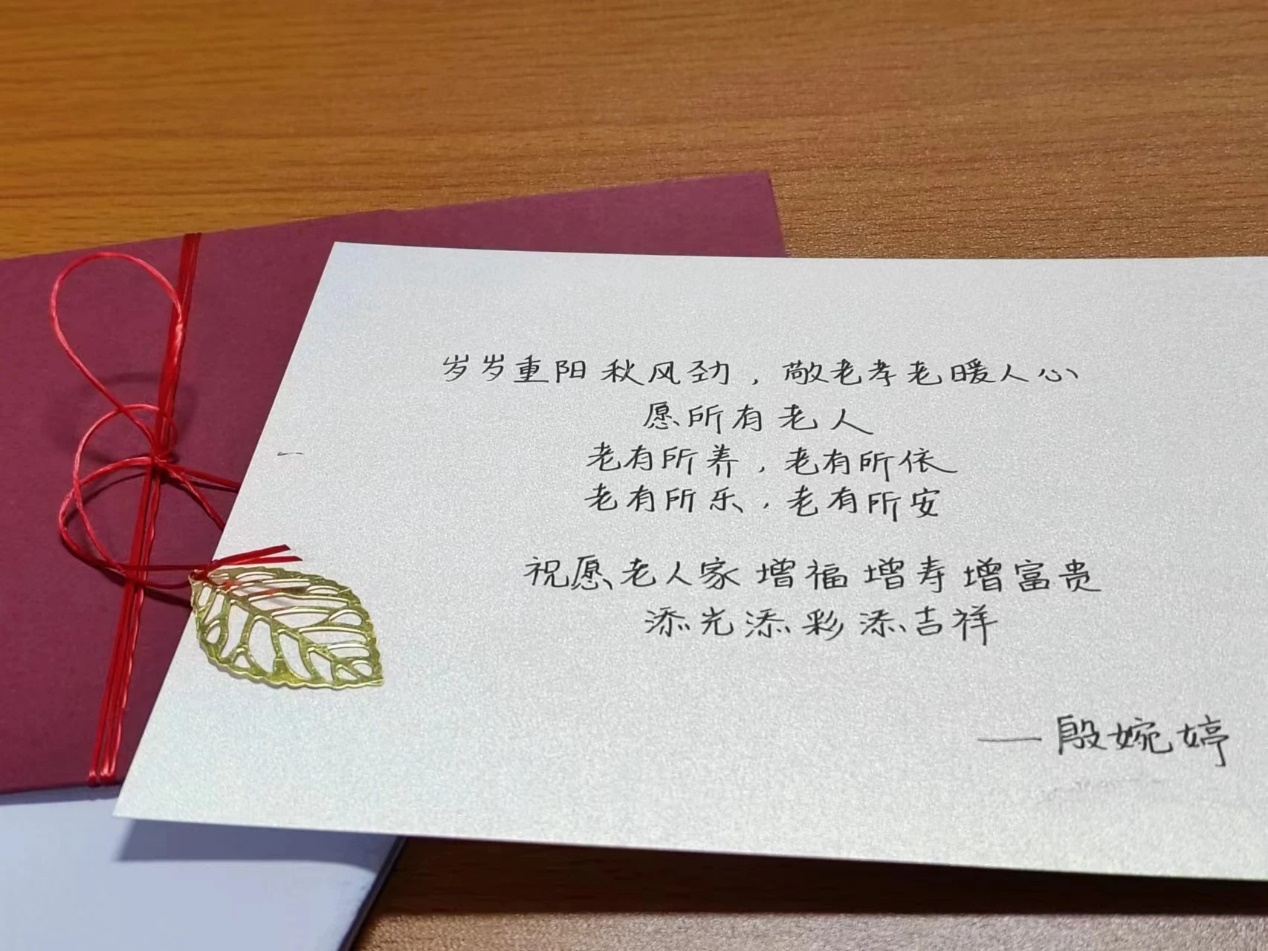 岁岁重阳秋风劲，敬老孝老暖人心
愿所有老人
老有所养，老有所依
老有所乐，老有所安
祝愿老人家增福增寿增富贵
添光添彩添吉祥
——殷婉婷